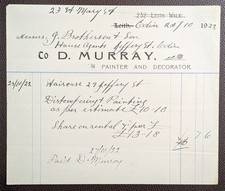 23 St Mary St
232 LEITH WALK,
Leith, Edin 28/10 1922
Messrs J. Brotherson & Son
House Agents Jeffrey St. Edin
To D. MURRAY,
PAINTER AND DECORATOR
24/10/22 Staircase 29 Jeffrey St
Distempering & Painting
as per estimate £10-10
Share on rental per £
£13-18 7 6
Paid D. Murray